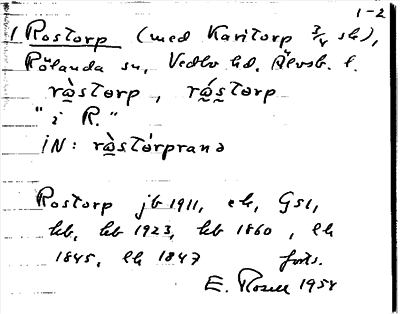 1-2
1 Rostorp (med Karitorp 3/4 sk),
Rölanda sn, Vedbo hd, Älvsb. l.
rὼstorp, rώstorp
"i R."
iN: rὼstorparana
Rostorp jb 1911, ek, GS1,
hb, kb 1923, kb 1860, lk
1845, lk 1847 forts.
E. Rosell 1954